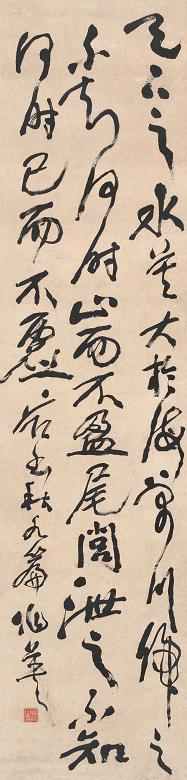 天下之水莫大於海萬川歸之
不知何時止而不盈尾閭泄之不知
何時已而不虛 秋水篇